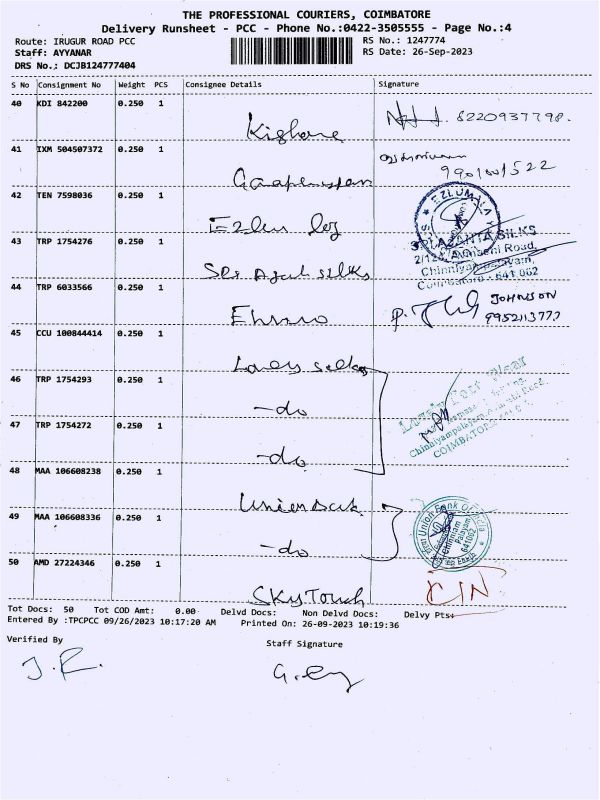 THE PROFESSIONAL COURIERS, COIMBATORE
Delivery Runsheet - PCC - Phone No.:0422-3505555 - Page No.:4
Route: IRUGUR ROAD PCC
Staff: AYYANAR
DRS No.: DCJB124777404
RS No.: 1247774
RS Date: 26-Sep-2023
S No Consignment No Weight PCS Consignee Details Signature
40 KDI 842200 0.250 1
8220937798.
41 IXM 504507372 0.250 1
42 TEN 7598036 0.250 1
43 TRP 1754276 0.250 1
SRI AJANTA SILKS
2/12 Avinashi Road,
Chinniyampalayam,
Coimbatore - 641 062
44 TRP 6033566 0.250 1
JOHNSON
9952113777
45 CCU 100844414 0.250 1
Lovely silks
46 TRP 1754293 0.250 1
-do
47 TRP 1754272 0.250 1
-do
Lovely Feet Wear
COIMBATORE
48 MAA 106608238 0.250 1
49 MAA 106608336 0.250 1
-do
Union Bank of India
50 AMD 27224346 0.250 1
SKY Touch
Tot Docs: 50 Tot COD Amt: 0.00 Delvd Docs: Non Delvd Docs: Delvy Pts:
Entered By :TPCPCC 09/26/2023 10:17:20 AM Printed On: 26-09-2023 10:19:36
Verified By
Staff Signature